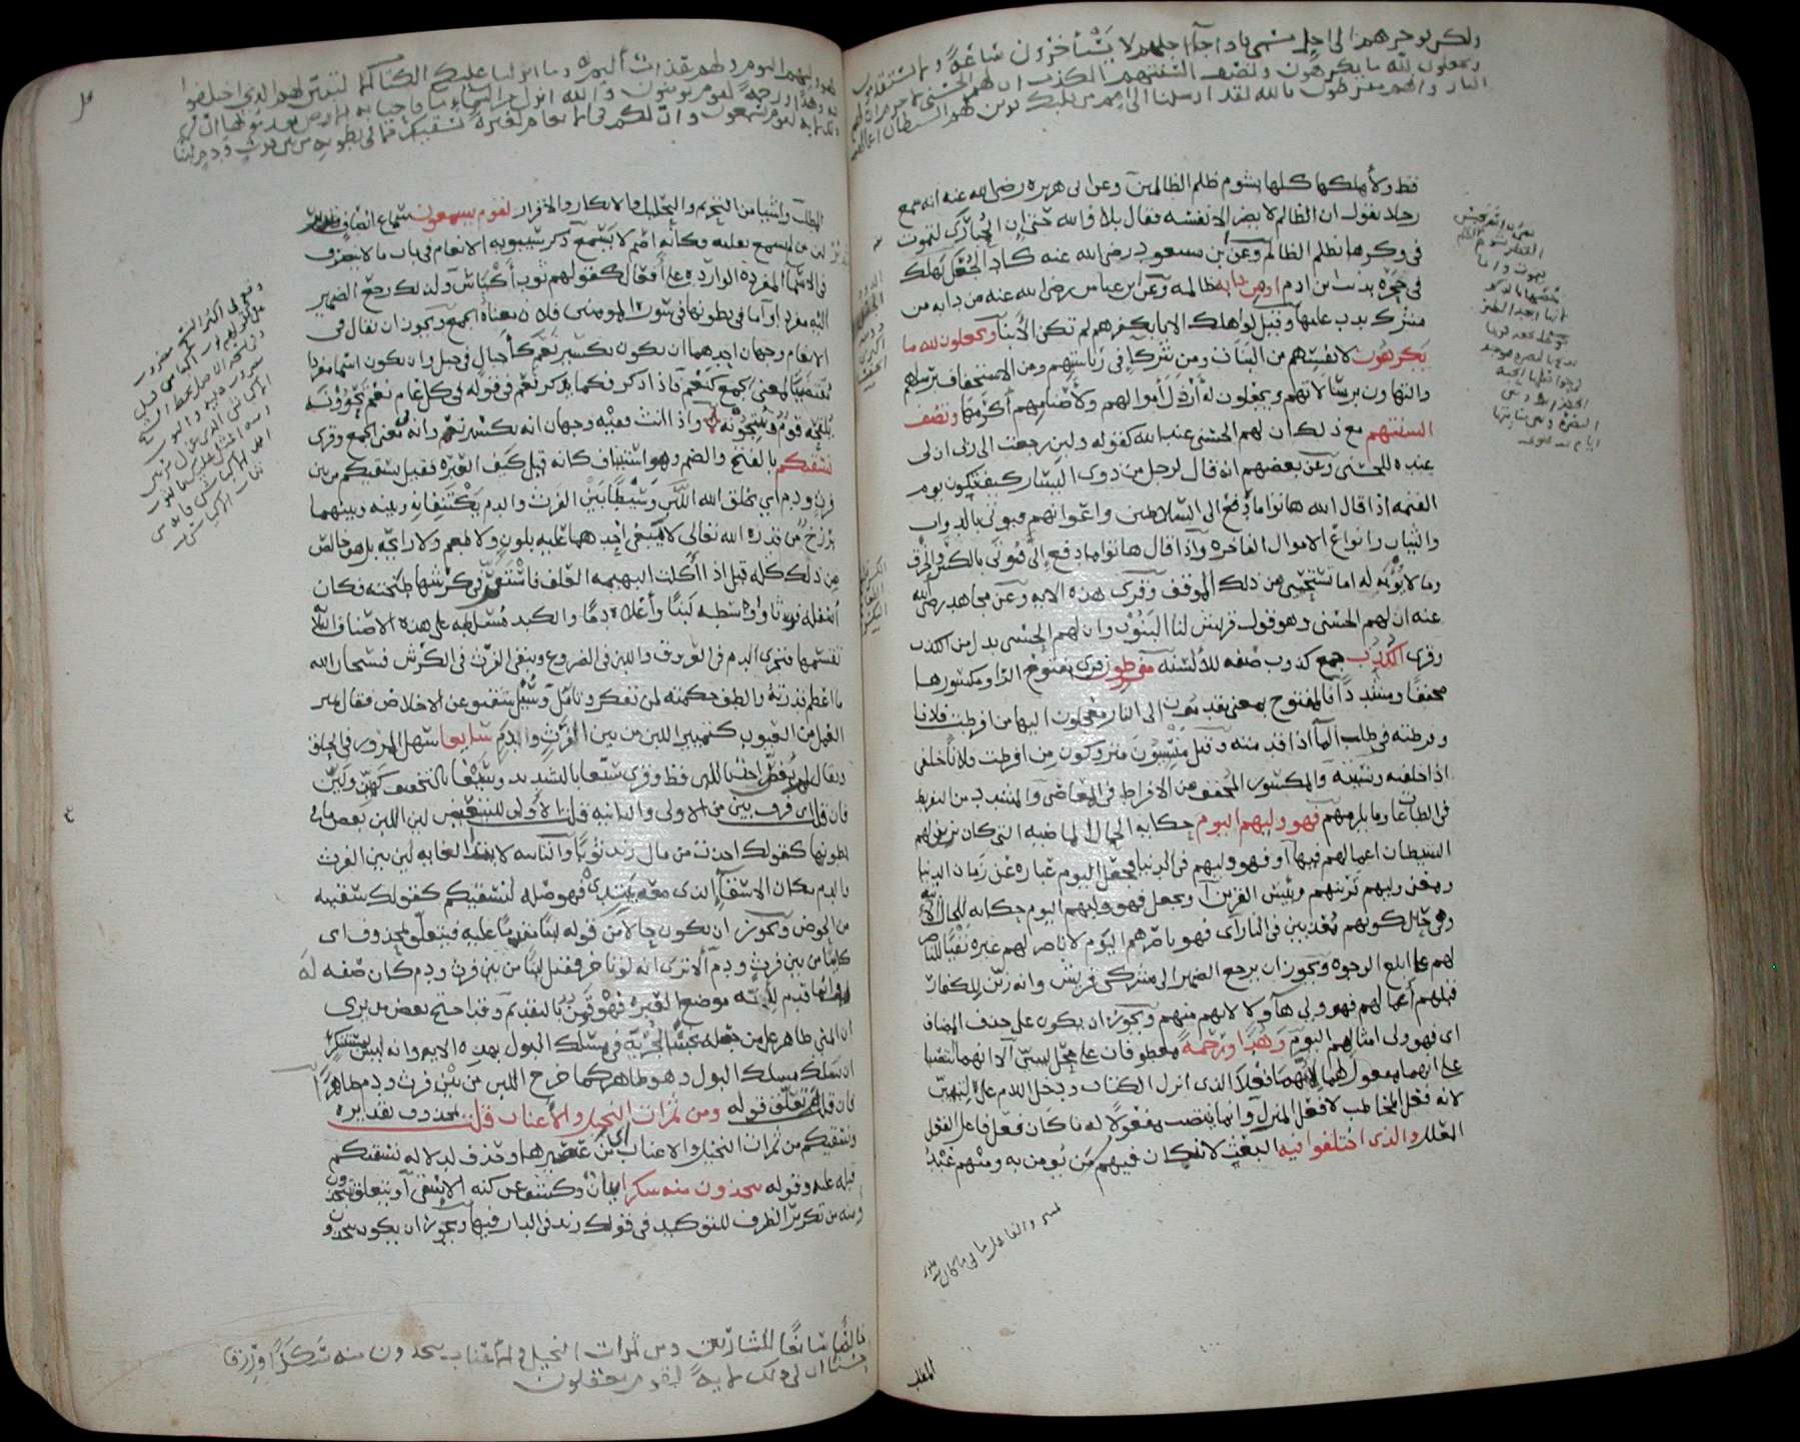 ولكن يوخرهم الى اجل مسمى فاذا جآ اجلهم لا يستأخرون ساعةً ولا يستقدمون
ويجعلون لله ما يكرهون وتصف السنتهم الكذب ان لهم الحسنى لا جرم ان لهم
النار وانهم مفرطون تالله لقد ارسلنا الى امم من قبلك فزين لهم الشيطان اعمالهم
قط ولأهلكها كلها بشوم ظلم الظالمين وعن ابى هريره رضى الله عنه انه سمع
رجلا يقول ان الظالم لا يضر الا نفسه فقال بلا والله حتى ان الحبارى لتموت
فى وكرها بظلم الظالم وعن ابن مسعود رضى الله عنه كاد الجعل يهلك
فى جحره بذنب ابن ادم او من دابه ظالمه وعن ابن عباس رضى الله عنه من دابه من
مشرك يدب عليها وقيل لو اهلك الابا بكفرهم لم تكن الأبنا ويجعلون لله ما
يكرهون لانفسهم من البنات ومن شركاء فى رئاستهم ومن الاستخفاف برسلهم
والتهاون برسالاتهم ويجعلون له أرذل أموالهم ولأصنامهم أكرمها وتصف
السنتهم مع ذلك ان لهم الحسنى عند الله كقوله ولين رجعت الى ربى ان لى
عنده للحسنى وعن بعضهم انه قال لرجل من ذوى اليسار كيف تكون يوم
القيمه اذا قال الله هاتوا ما دفع الى السلاطين واعوانهم فيوتى بالدواب
والثياب وانواع الاموال الفاخره واذا قال هاتوا ما دفع إلى فيوتى بالكسر والخرق
وما لا يوبه له اما تستحيى من ذلك الموقف وقرى هذه الايه وعن مجاهد رضى الله
عنه ان لهم الحسنى وهو قول قريش لنا البنون وان لهم الحسنى بدل من الكذب
وقرى الكذب جمع كذوب صفه للألسنه مفرطون قرى مفتوح الرا ومكسورها
مخففا ومشددا فالمفتوح بمعنى مقدمون الى النار معجلون اليها من افرطت فلانا
وفرطته فى طلب المآ اذا قدمته وقيل منسيون متروكون من افرطت فلانا خلفى
اذا خلفته ونسيته والمكسور المخفف من الافراط فى المعاصى والمشدد من التفريط
فى الطاعات وما يلزمهم فهو وليهم اليوم حكايه الحال الماضيه التى كان يزين لهم
الشيطان اعمالهم فيها أو فهو وليهم فى الدنيا فجعل اليوم عباره عن زمان الدنيا
ومعنى وليهم قرينهم وبيس القرين او يجعل فهو وليهم اليوم حكايه للحال الآتيه
وهى حال كونهم معذبين فى النار آى فهو ناصرهم اليوم لا ناصر لهم غيره نفيا للناصر
لهم على ابلغ الوجوه ويجوز ان يرجع الضمير الى مشركى قريش وانه زين للكفار
قبلهم أعمالهم فهو ولى هآولا لانهم منهم ويجوز ان يكون على حذف المضاف
اى فهو ولى امثالهم اليوم وهدى ورحمة معطوفان على محل لتبين الا انهما انتصبا
على انهما مفعول لهما لانهما فعلا الذى انزل الكتاب ودخل اللام على لتبين
لانه فعل المخاطب لا فعل المنزل وانما ينتصب مفعولا له ما كان فعل فاعل الفعل
المعلل والذى اختلفوا فيه البعث لانه كان فيهم من يومن به ومنهم عبد
المطلب
فهو وليهم اليوم ولهم عذاب أليم وما انزلنا عليك الكتاب الا لتبين لهم الذى اختلفوا
فيه وهدى ورحمةً لقوم يومنون والله انزل من السماء ما فاحيا به الارض بعد موتها ان فى
ذلك لايه لقوم يسمعون وان لكم فى الانعام لعبرة نسقيكم مما فى بطونه من بين فرث ودم لبنا
المطلب واشيا من التحريم والتحليل والانكار والاقرار لقوم يسمعون سماع انصاف وتدبر
لان من لم يسمع بقلبه فكأنه اصم لا يسمع ذكر سيبويه الانعام فى باب ما لا ينصرف
فى الاسمآ المفرده الوارده على أفعال كقولهم ثوب أكياش ولذلك رجع الضمير
اليه مفردا وآما فى بطونها فى سوره المومنين فلان معناه الجمع ويجوز ان يقال فى
الانعام وجهان احدهما ان يكون تكسير نعم كأجبال فى جبل وان يكون اسما مفردا
مقتضيا لمعنى الجمع كنعم فاذا ذكر فكما يذكر نعم فى قوله فى كل عام نعم تحوونه
يلقحه قوم وتنتجونه واذا انث ففيه وجهان انه تكسير نعم وانه فى معنى الجمع وقرى
نسقيكم بالفتح والضم وهو استيناف كانه قيل كيف العبره فقيل نسقيكم من بين
فرث ودم اى يخلق الله اللبن وسيطا بين الفرث والدم يكتنفانه وبينه وبينهما
برزخ من قدره الله تعالى لا يبغى احدهما عليه بلون ولا طعم ولا رايحه بل هو خالص
من ذلك كله قيل اذا أكلت البهيمه العلف فاستقر فى كرشها طبخته فكان
أسفله فرثا واوسطه لبنا وأعلاه دما والكبد مسلطه على هذه الاصناف الثلاثه
تقسمها فتجرى الدم فى العروق واللبن فى الضروع وتبقى الفرث فى الكرش فسبحان الله
ما اعظم قدرته والطف حكمته لمن تفكر وتأمل وسيل شقيق عن الاخلاص فقال تمييز
العمل من العيوب كتمييز اللبن من بين الفرث والدم سايغا سهل المرور فى الحلق
ويقال لم يغص احد باللبن قط وقرى سيغا بالتشديد وسيغا بالتخفيف كهين ولين
فان قلت اى فرق بين من الاولى والثانيه قلت الاولى للتبعيض لان اللبن بعض ما فى
بطونها كقولك اخذت من مال زيد ثوبا والثانيه لابتدا الغايه لان بين الفرث
والدم مكان الاسقآ الذى منه يبتدى فهو صله لنسقيكم كقولك سقيته
من الحوض ويجوز ان يكون حالا من قوله لبنا مقدما عليه فيتعلق بمحذوف اى
كاينا من بين فرث ودم ألا ترى انه لو تاخر فقيل لبنا من بين فرث ودم كان صفه له
وانما قدم لأنه موضع العبره فهو قمن بالتقديم وقد احتج بعض من يرى
ان المنى طاهر على من جعله نجسا لجريه فى مسلك البول بهذه الايه وانه ليس بمستنكر
ان يسلك مسلك البول وهو طاهر كما خرج اللبن من بين فرث ودم طاهرا
فان قلت بم تعلق قوله ومن ثمرات النخيل والأعناب قلت بمحذوف تقديره
ونسقيكم من ثمرات النخيل والاعناب اى من عصيرها وحذف لدلاله نسقيكم
قبله عليه وقوله تتخذون منه سكرا بيان وكشف عن كنه الاسقآ أو يتعلق بتتخذون
ومنه من تكرير الظرف للتوكيد فى قولك زيد فى الدار فيها ويجوز ان يكون تتخذون
خالصا سائغا للشاربين ومن ثمرات النخيل والاعناب تتخذون منه سكرًا ورزقا
حسنا ان فى ذلك لايةً لقوم يعقلون